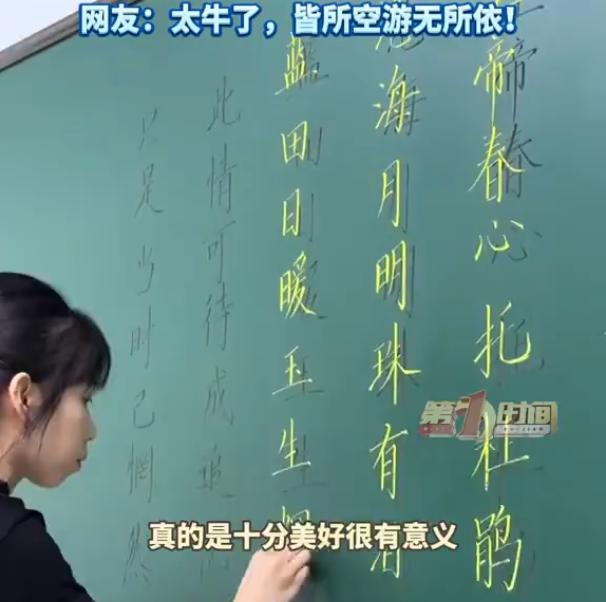 网友：太牛了，皆所空游无所依！
帝春心托杜鹃
海月明珠有
蓝田日暖玉生
此情可待成追
只是当时已惘然
第1时间
真的是十分美好很有意义